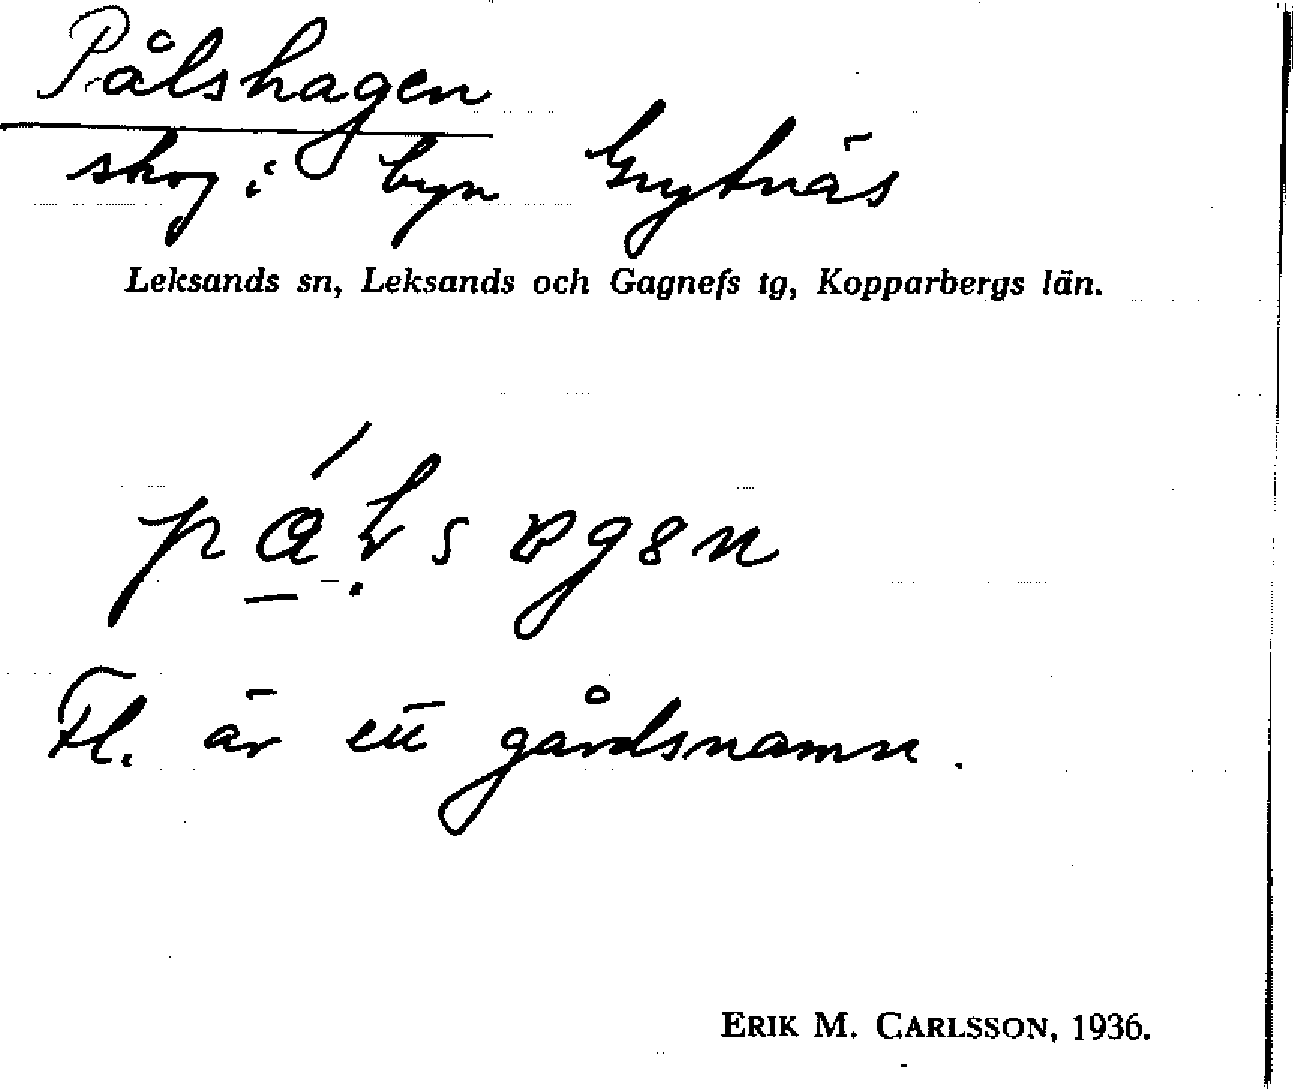 Pålshagen
skog i byn Grytnäs
Leksands sn, Leksands och Gagnefs tg, Kopparbergs län.
Fl. är ett gårdsnamn.
ERIK M. CARLSSON, 1936.